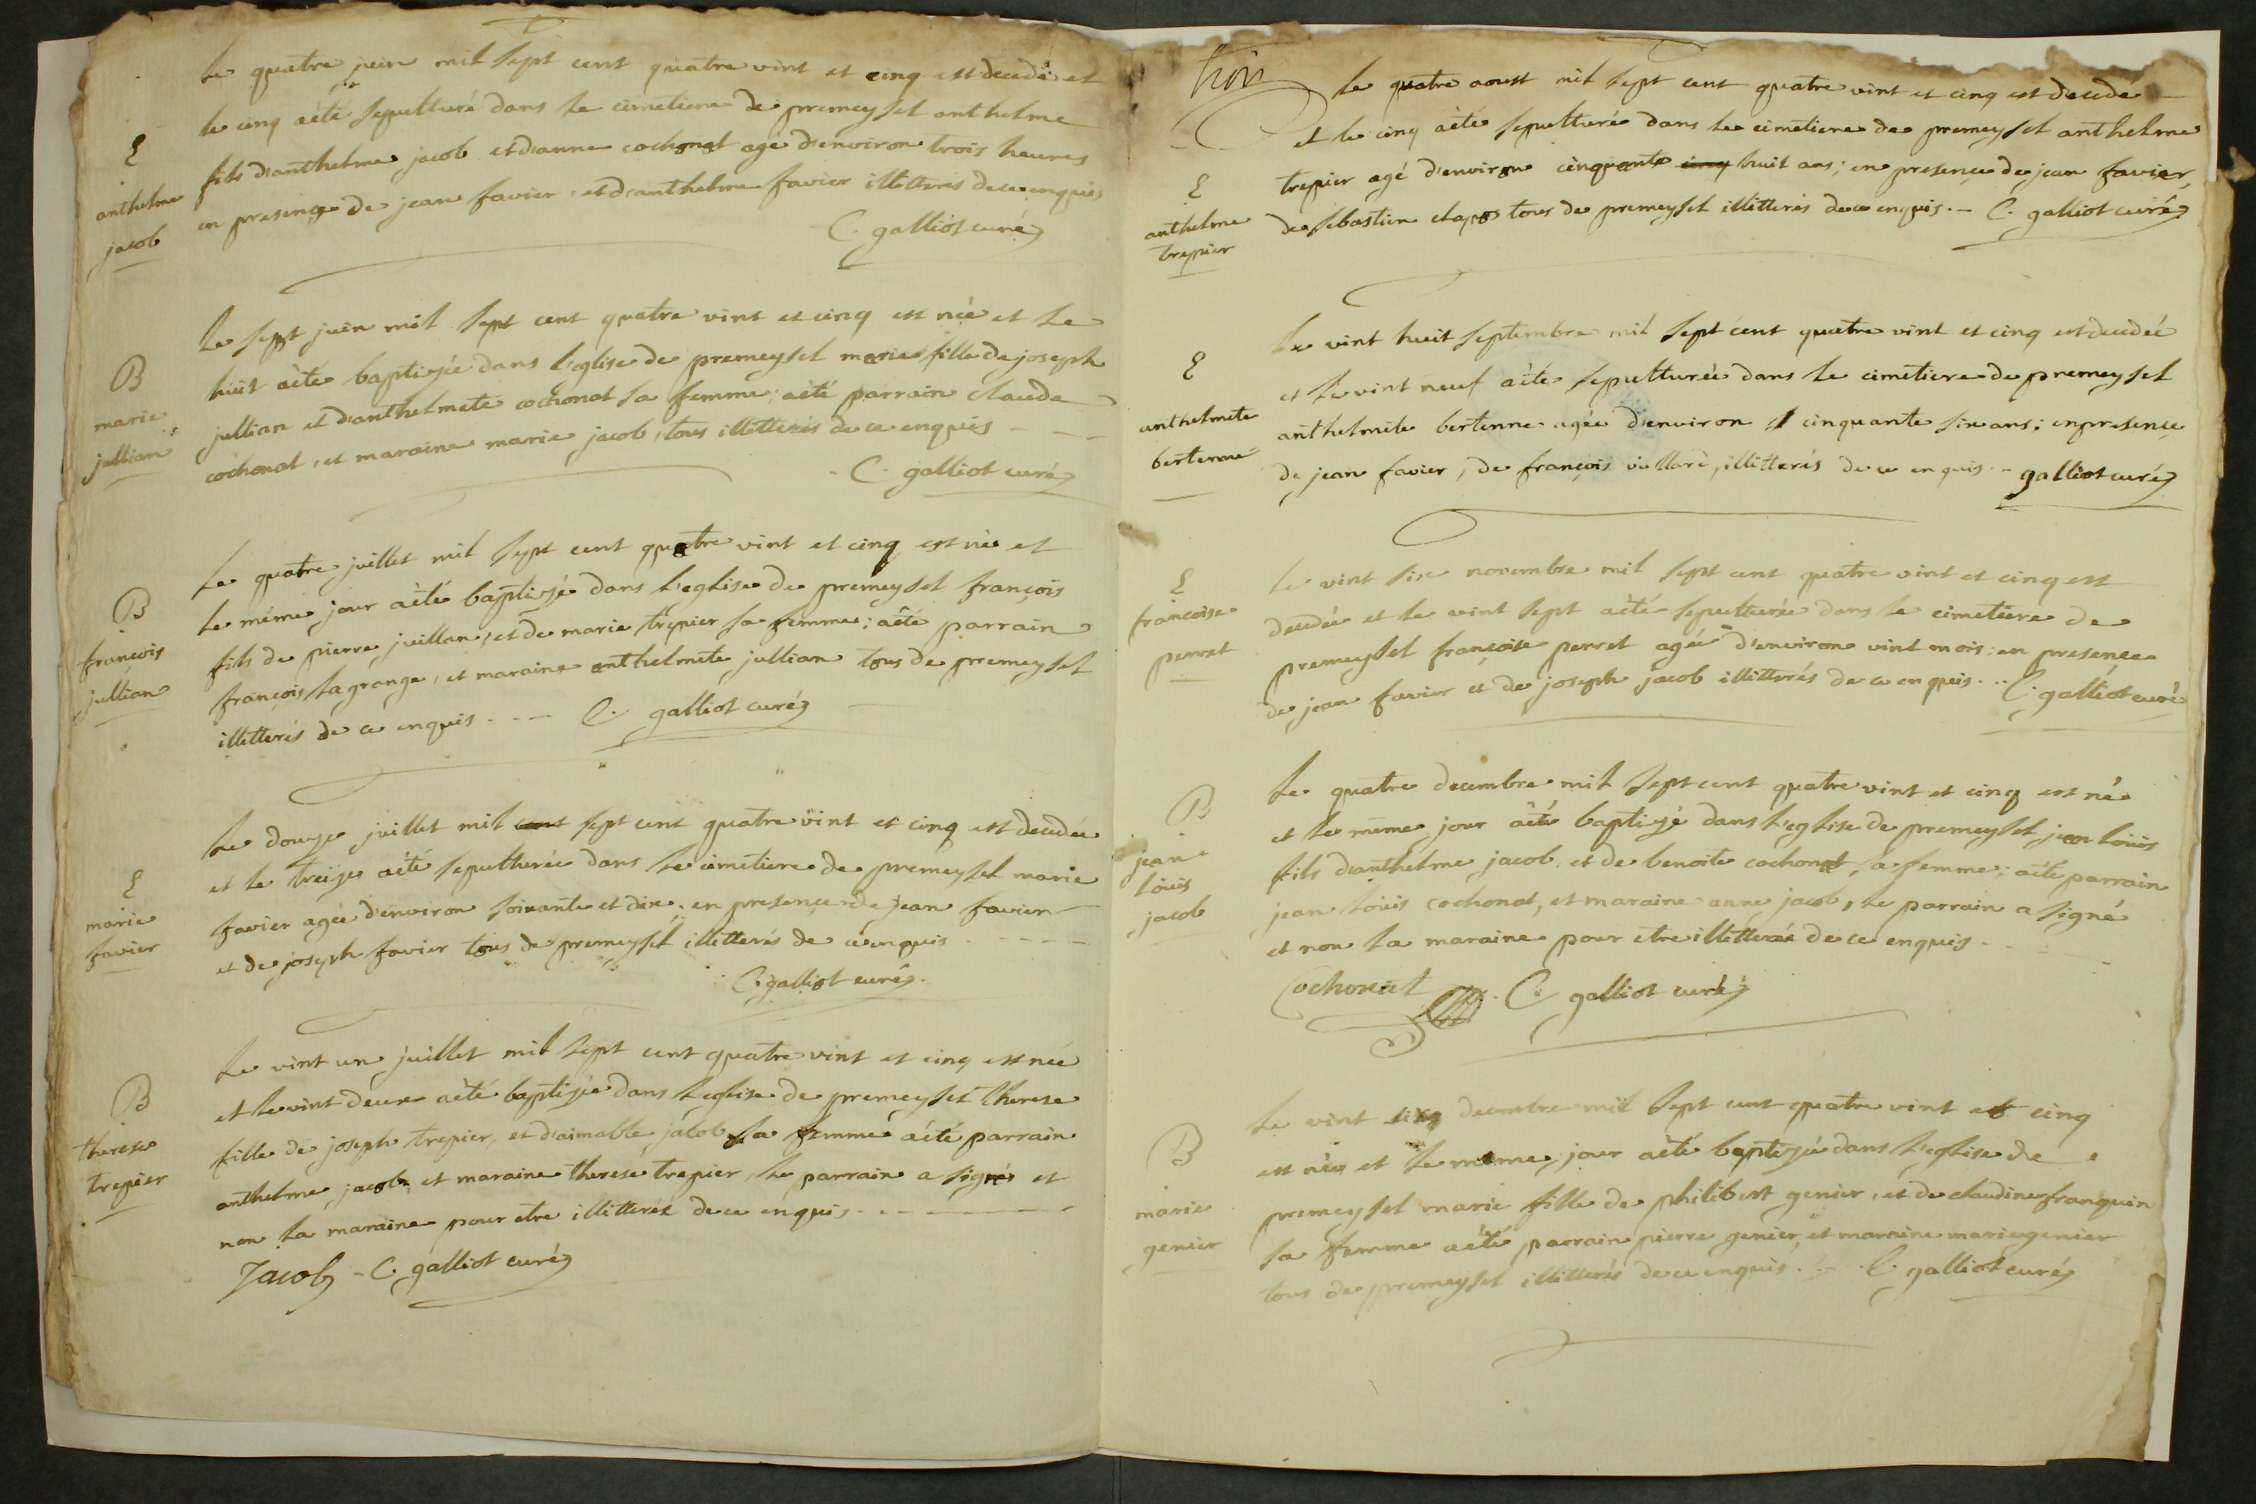 Le quatre juin mil sept cent quatre vint et cinq est decedé et
le cinq aété sepulturé dans le cimetiere de premeysel anthelme
fils d'anthelme jacob et d'anne cochonat agé d'environ trois heures
en presençe de jean favier et d'anthelme favier illitterés de ce enquis
C. galliot curé
E
anthelme
jacob
Le sept juin mil sept cent quatre vint et cinq est née et le
huit aété baptizée dans l'eglise de premeysel marie fille de joseph
jullian et d'anthelmete cochonat sa femme; aété parrain claude
cochonat, et maraine marie jacob, tous illitterés de ce enquis - - -
C. galliot curé
B
marie
jullian
Le quatre juillet mil sept cent quatre vint et cinq est né et
le méme jour aété baptizé dans l'eglise de premeysel françois
fils de pierre juillan, et de marie trepier sa femme; aété parrain
françois lagrange, et maraine anthelmete jullian tous de premeysel
illitterés de ce enquis - - - C. galliot curé
B
francois
jullian
Le douze juillet mil cent sept cent quatre vint et cinq est decedée
et le treize aété sepulturée dans le cimetiere de premeysel marie
favier agée d'environ soixante et dix; en presençe de jean favier
et de joseph favier tous de premeysel illitterés de ce enquis - - - -
C. galliot curé
E
marie
favier
Le vint un juillet mil sept cent quatre vint et cinq est née
et le vint deux aété baptizée dans l'eglise de premeysel therese
fille de joseph trepier, et d'aimable jacob sa femme aété parrain
anthelme jacob, et maraine therese trepier, le parrain a signé et
non la maraine pour etre illitterée de ce enquis - - - - -
Jacob - C. galliot curé
B
therese
trepier
Le quatre aoust mil sept cent quatre vint et cinq est decedé
et le cinq aété sepulturé dans le cimetiere de premeysel anthelme
trepier agé d'environ cinquante cinq huit ans; en presençe de jean favier,
de sebastien tous de premeysel illitterés de ce enquis. - C. galliot curé
E
anthelme
trepier
Le vint huit septembre mil sept cent quatre vint et cinq est decedée
et le vint neuf aété sepulturée dans le cimetiere de premeysel
anthelmete bertenne agée d'environ cinquante six ans; en presençe
de jean favier, de françois vullard, illitterés de ce enquis - galliot curé
E
anthelmete
bertenne
Le vint six novembre mil sept cent quatre vint et cinq est
decedée et le vint sept aété sepulturée dans le cimetiere de
premeysel françoise perret agée d'environ vint mois: en presençe
de jean favier et de joseph jacob illitterés de ce enquis - C. galliot curé
E
francoise
perret
Le quatre decembre mil sept cent quatre vint et cinq est né
et le méme jour aété baptizé dans l'eglise de premeysel jean loüis
fils d'anthelme jacob, et de benoite cochonat sa femme; aété parrain
jean loüis cochonat, et maraine anne jacob, le parrain a signé
et non la maraine pour etre illitterée de ce enquis -
Cochonat C. galliot curé
B
jean
loüis
jacob
Le vint decembre mil sept cent quatre vint et cinq
est née et le méme jour aété baptizée dans l'eglise de
premeysel marie fille de philibert genier, et de claudine franquin
sa femme aété parrain pierre genier, et maraine marie genier
tous de premeysel illitterés de ce enquis. - C. galliot curé
B
marie
genier